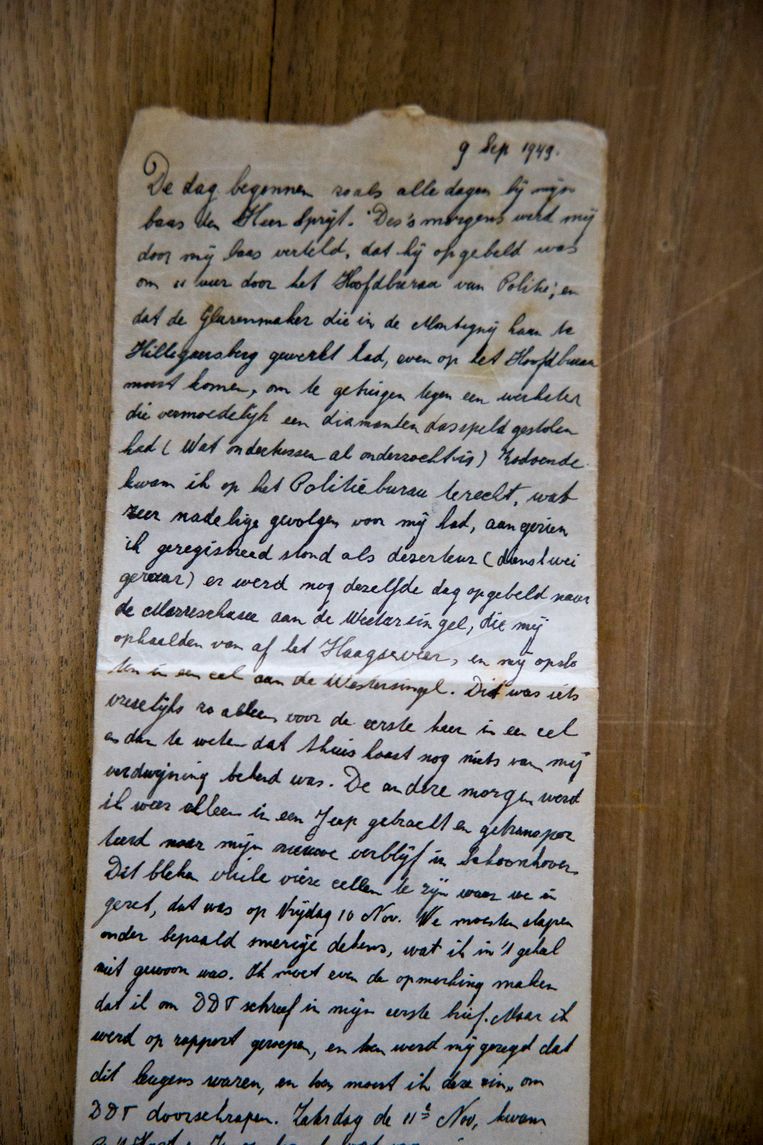 9 Sep 1949.
De dag begonnen zoals alle dagen bij mijn
baas den Heer Sprijt. Des's morgens werd mij
door mij baas verteld, dat hij opgebeld was
om 11 uur door het Hoofdbureau van Politie; en
dat de Glazenmaker die in de Montigny laan te
Hillegaersberg gewerkt had, even op het Hoofdbureau
moest komen, om te getuigen tegen een werkster
die vermoedelijk een diamanten dasspeld gestolen
had (Wat ondertussen al onderzocht is) Zodoende
kwam ik op het Politiebureau terecht, wat
zeer nadelige gevolgen voor mij had, aangezien
ik geregistreed stond als deserteur (dienstwei
geraar) er werd nog dezelfde dag opgebeld naar
de Marreschasee aan de Westersingel, die mij
ophaalden van af het Haagseveer, en mij opslo
ten in een cel aan de Westersingel. Dit was iets
vreselijks zo alleen voor de eerste keer in een cel
en dan te weten dat thuis haast nog niets van mij
verdwijning bekend was. De andere morgen werd
ik weer alleen in een Jeep gebracht en getranspor
teerd naar mijn nieuwe verblijf in Schoonhoven
Dat bleken vieze cellen te zijn waar we in
gezet, dat was op Vrijdag 10 Nov. We moesten slapen
onder bepaald smerige dekens, wat ik in 't gehal
niet gewoon was. Ik moet even de opmerking maken
dat ik om DDT schreef in mijn eerste brief. Maar ik
werd op rapport geroepen, en toen werd mij gezegd dat
dit leugens waren, en toen moest ik deze zin, om
DDT doorschrapen. Zaterdag de 11e Nov, kwam